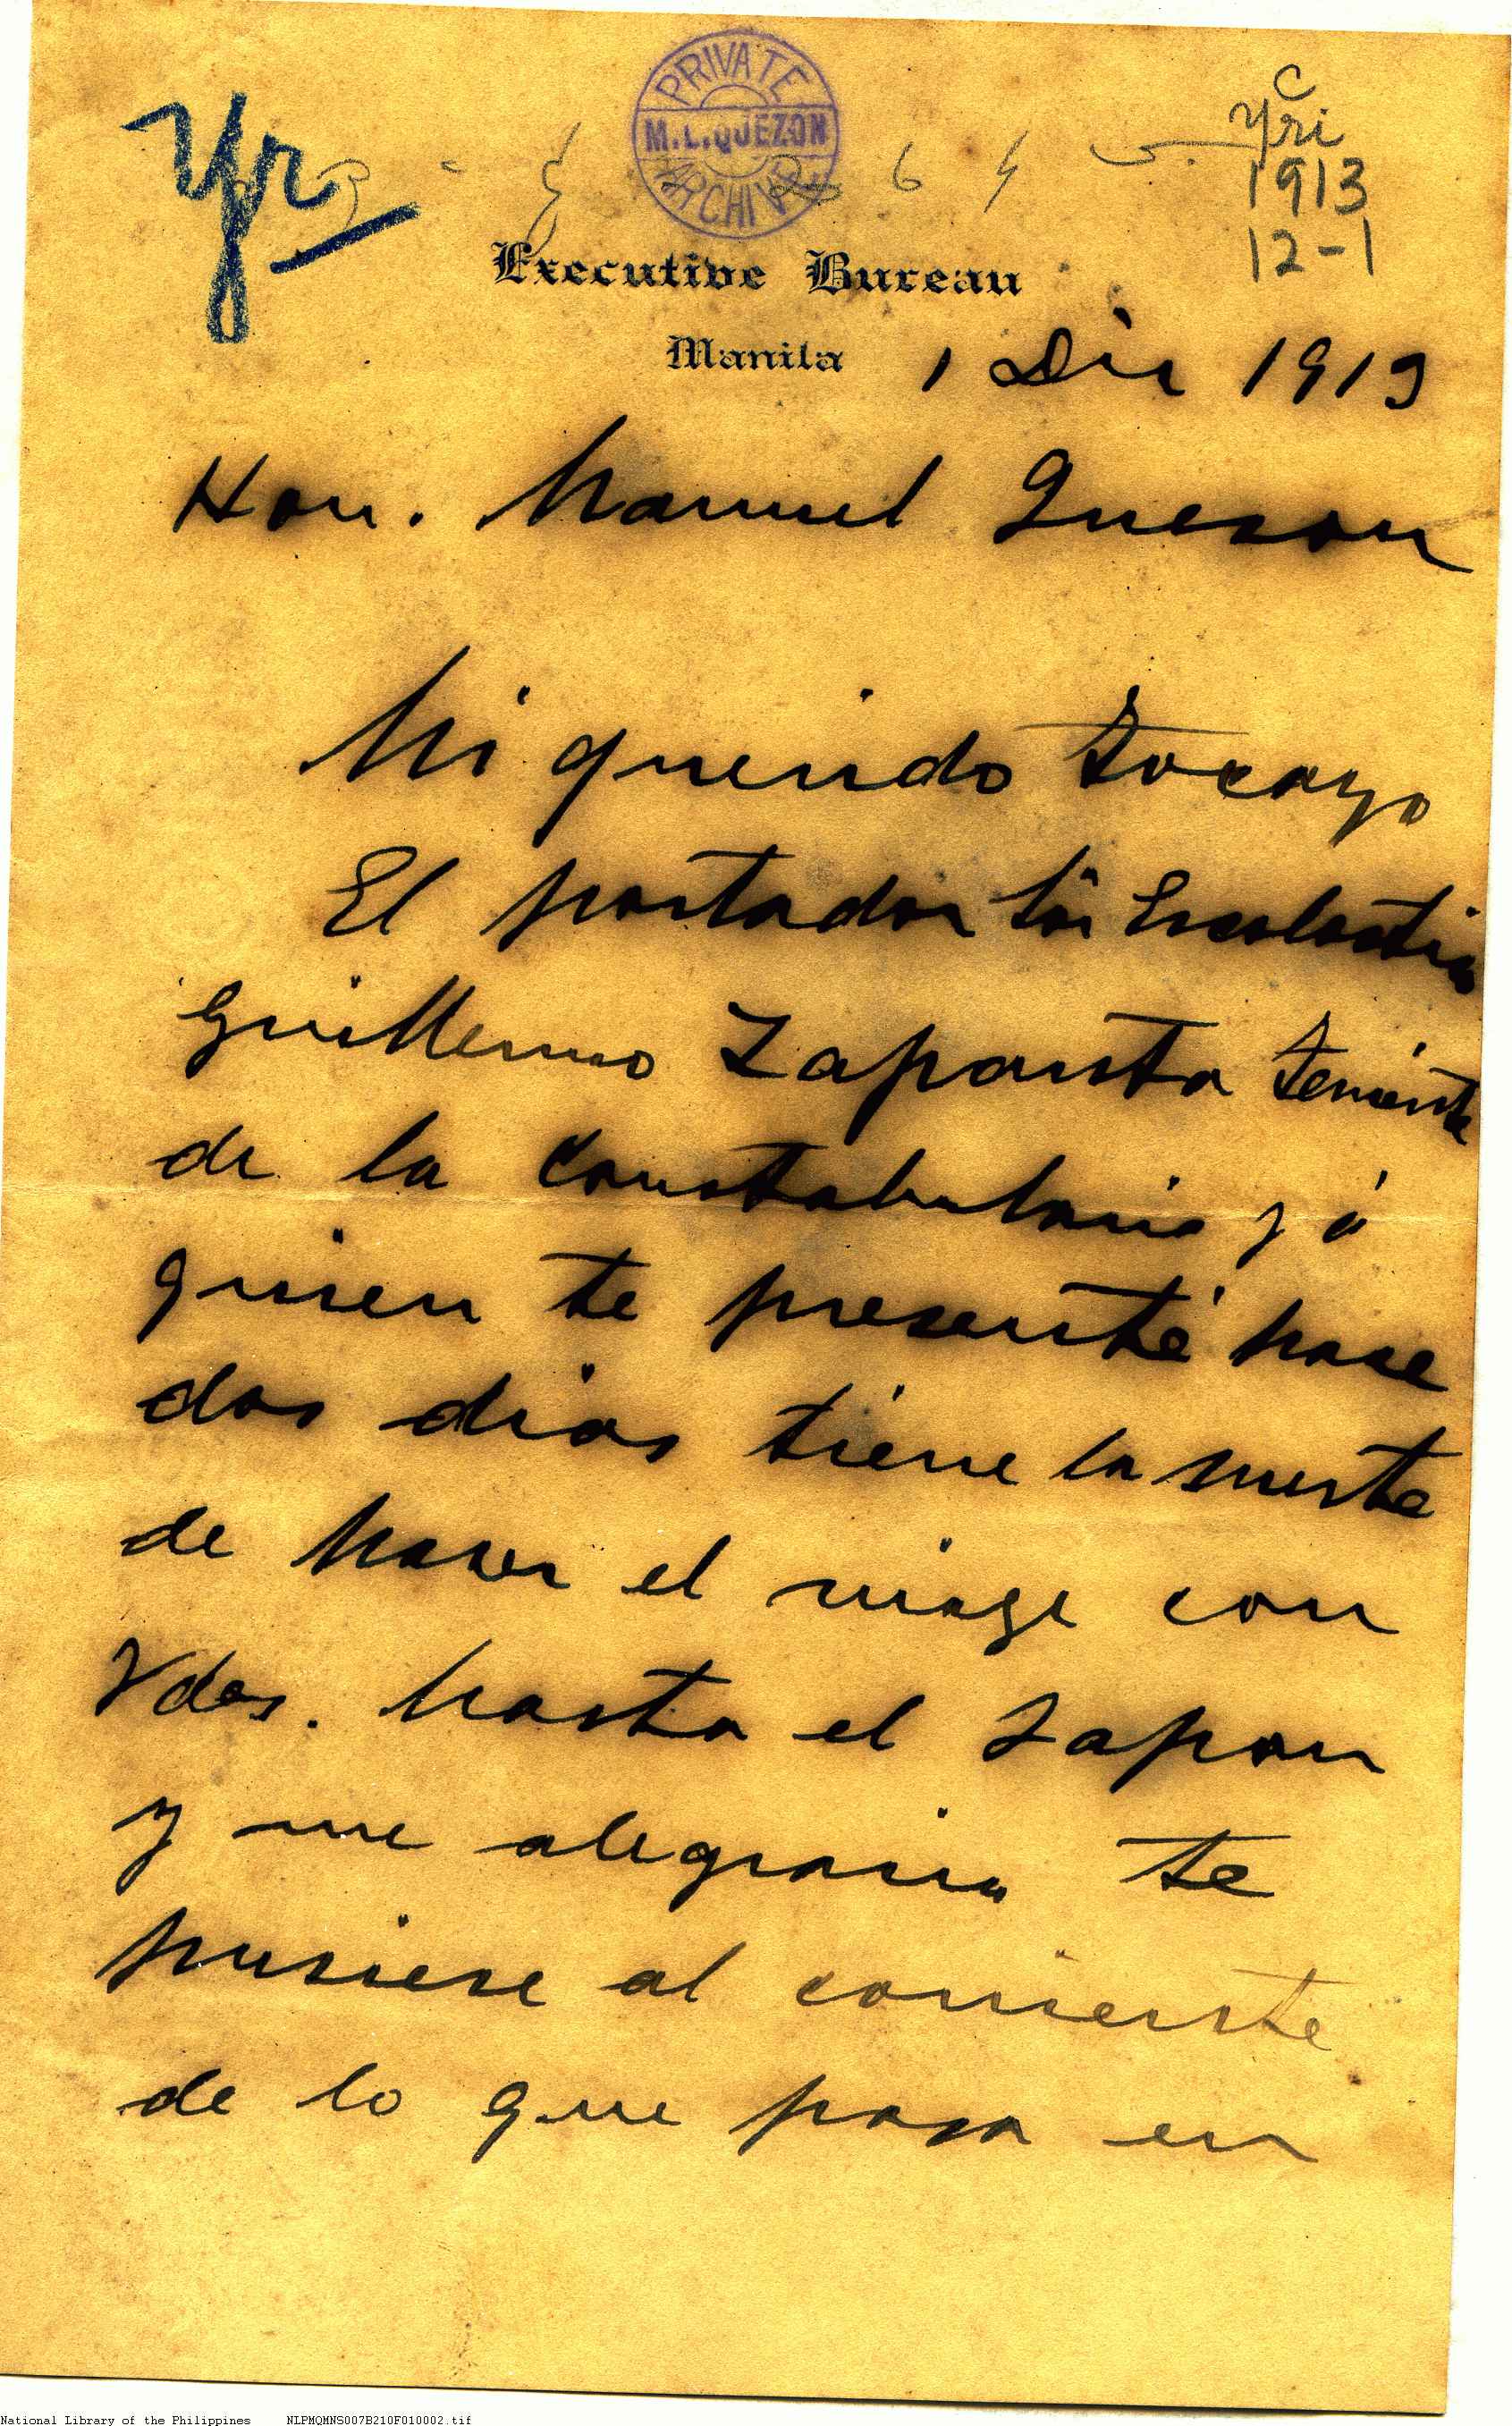 Yr
C
Yri
1913
12-1
PRIVATE
M.L.QUEZON
ARCHIVE
Executive Bureau
Manila 1 Dic 1913
Hon. Manuel Queson
Mi querido tocayo
El portador
Guillermo teniente
de la Constabularia y á
quien te presenté hace
dos dias tiene la suerte
de hacer el viage con
Vdes. hasta el Japon
y me alegraria te
pusiese al corriente
de lo que pasa en
National Library of the Philippines NLPMQMNS007B210F010002.tif